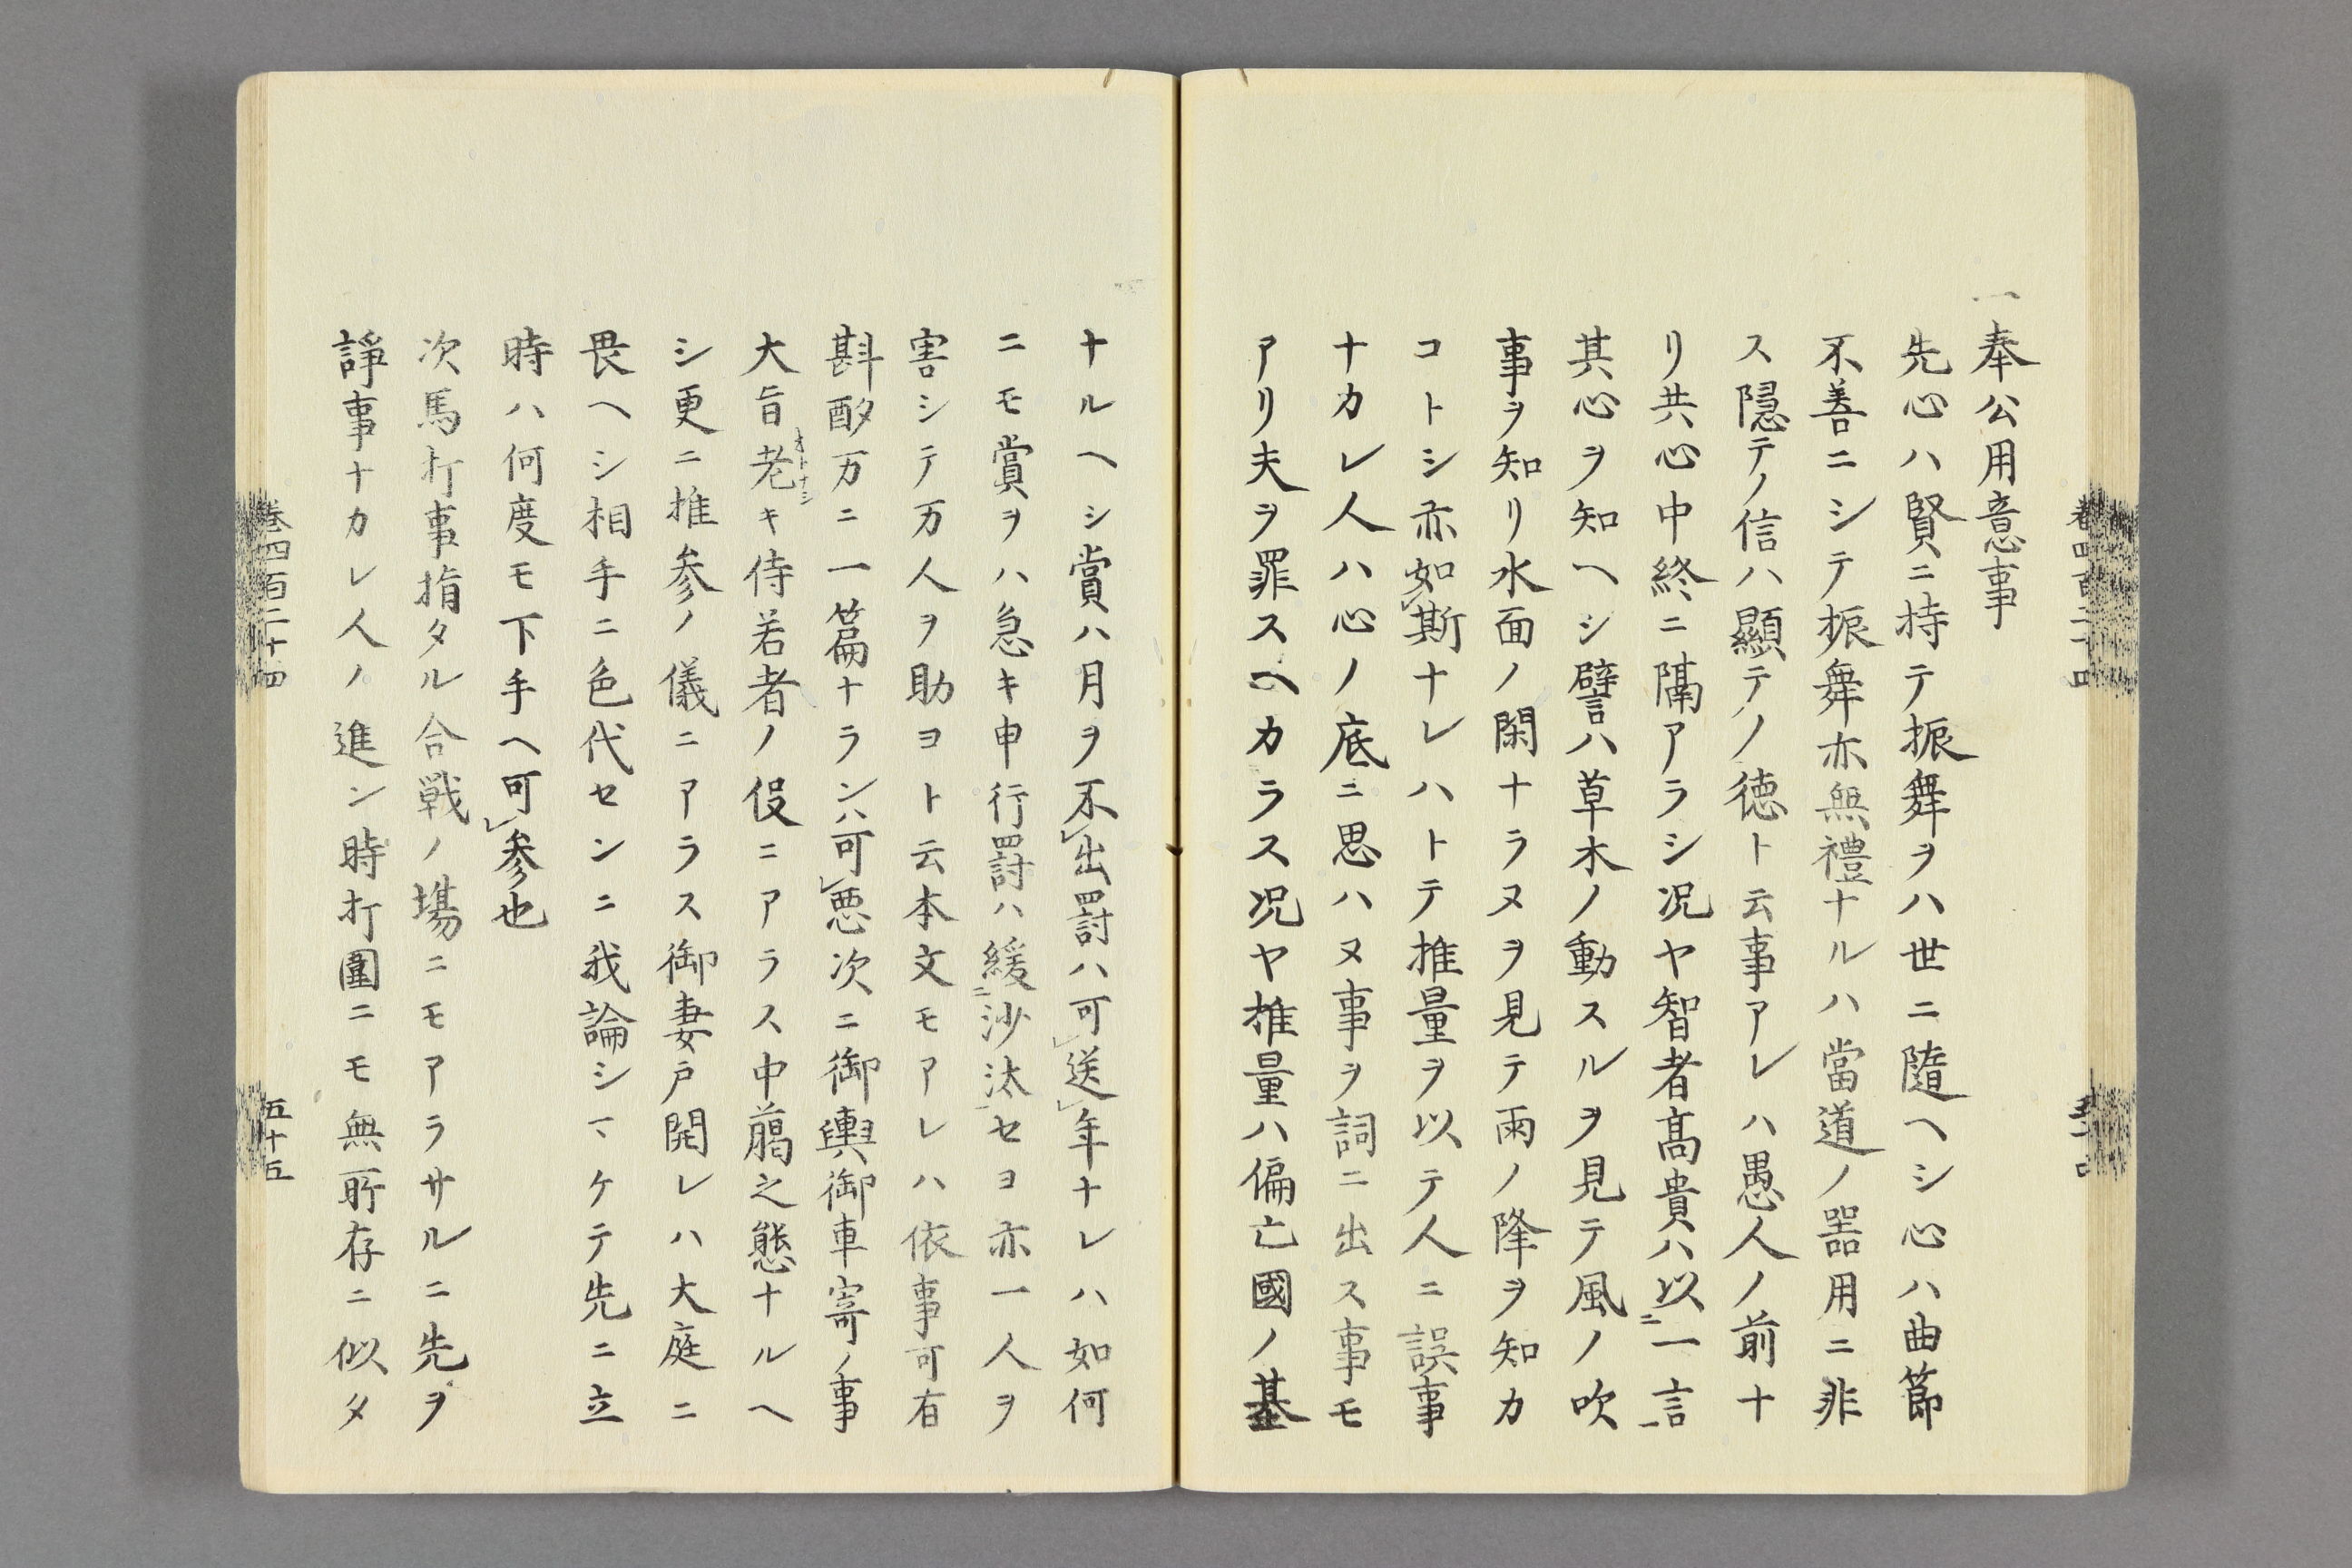 一奉公用意事
先心ハ賢ニ持テ振舞ヲハ世ニ隨ヘシ心ハ曲節
不善ニシテ振舞亦無禮ナルハ當道ノ器用ニ非
ス隠テノ信ハ顯テノ徳ト云事アレハ愚人ノ前ナ
リ共心中終ニ隔アラシ况ヤ智者髙貴ハ以ニ一言一
其心ヲ知ヘシ譬ハ草木ノ動スルヲ見テ風ノ吹
事ヲ知リ水面ノ閑ナラヌヲ見テ雨ノ降ヲ知カ
コトシ亦如レ斯ナレハトテ推量ヲ以テ人ニ誤事
ナカレ人ハ心ノ底ニ思ハヌ事ヲ詞ニ出ス事モ
アリ夫ヲ罪スヘカラス况ヤ推量ハ偏亡國ノ基
卷四百二十四
ナルヘシ賞ハ月ヲ不レ出罸ハ可レ送レ年ナレハ如何
ニモ賞ヲハ急キ申行罸ハ緩ニ沙汰一セヨ亦一人ヲ
害シテ万人ヲ助ヨト云本文モアレハ依事可有
斟酌万ニ一篇ナランハ可レ悪次ニ御輿御車寄ノ事
大旨老オトナシキ侍若者ノ役ニアラス中﨟之態ナルヘ
シ更ニ推参ノ儀ニアラス御妻戸開レハ大庭ニ
畏ヘシ相手ニ色代センニ我論シマケテ先ニ立
時ハ何度モ下手ヘ可レ参也
次馬打事指タル合戦ノ場ニモアラサルニ先ヲ
諍事ナカレ人ノ進ン時打圍ニモ無所存ニ似タ
卷四百二十四
五十五